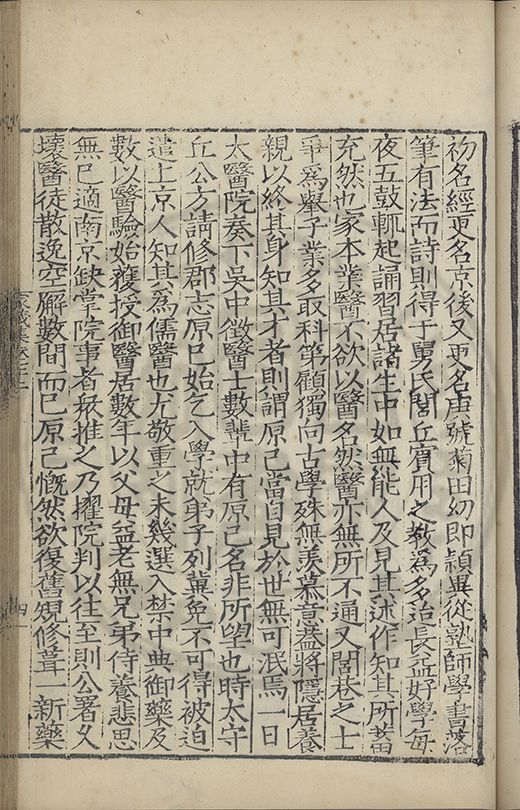 初名經更名京後又更名庚號菊田幼即穎異從塾師學書落
筆有法而詩則得于舅氏閭丘賓用之教爲多治長益好學每
夜五鼓輒起誦習居諸生中如無能人及見其述作知其所蓄
充然也家本業醫不欲以醫名然醫亦無所不通又閭巷之士
爭爲舉子業多取科第顧獨向古學殊無羨慕意蓋將隱居養
親以終其身知其才者則謂原已當自見於世無可泯焉一日
太醫院奏下吳中徵醫士數輩中有原已名非所望也時太守
丘公方請修郡志原已始乞入學就弟子列冀免不可得被迫
遣上京人知其爲儒醫也尤敬重之未幾選入禁中典御藥及
數以醫驗始獲授御醫居數年以父母益老無兄弟侍養悲思
無已適南京缺掌院事者衆推之乃擢院判以往至則公署久
壞醫徒散逸空廨數間而已原已慨然欲復舊規修葺一新藥
家藏集卷七十
四